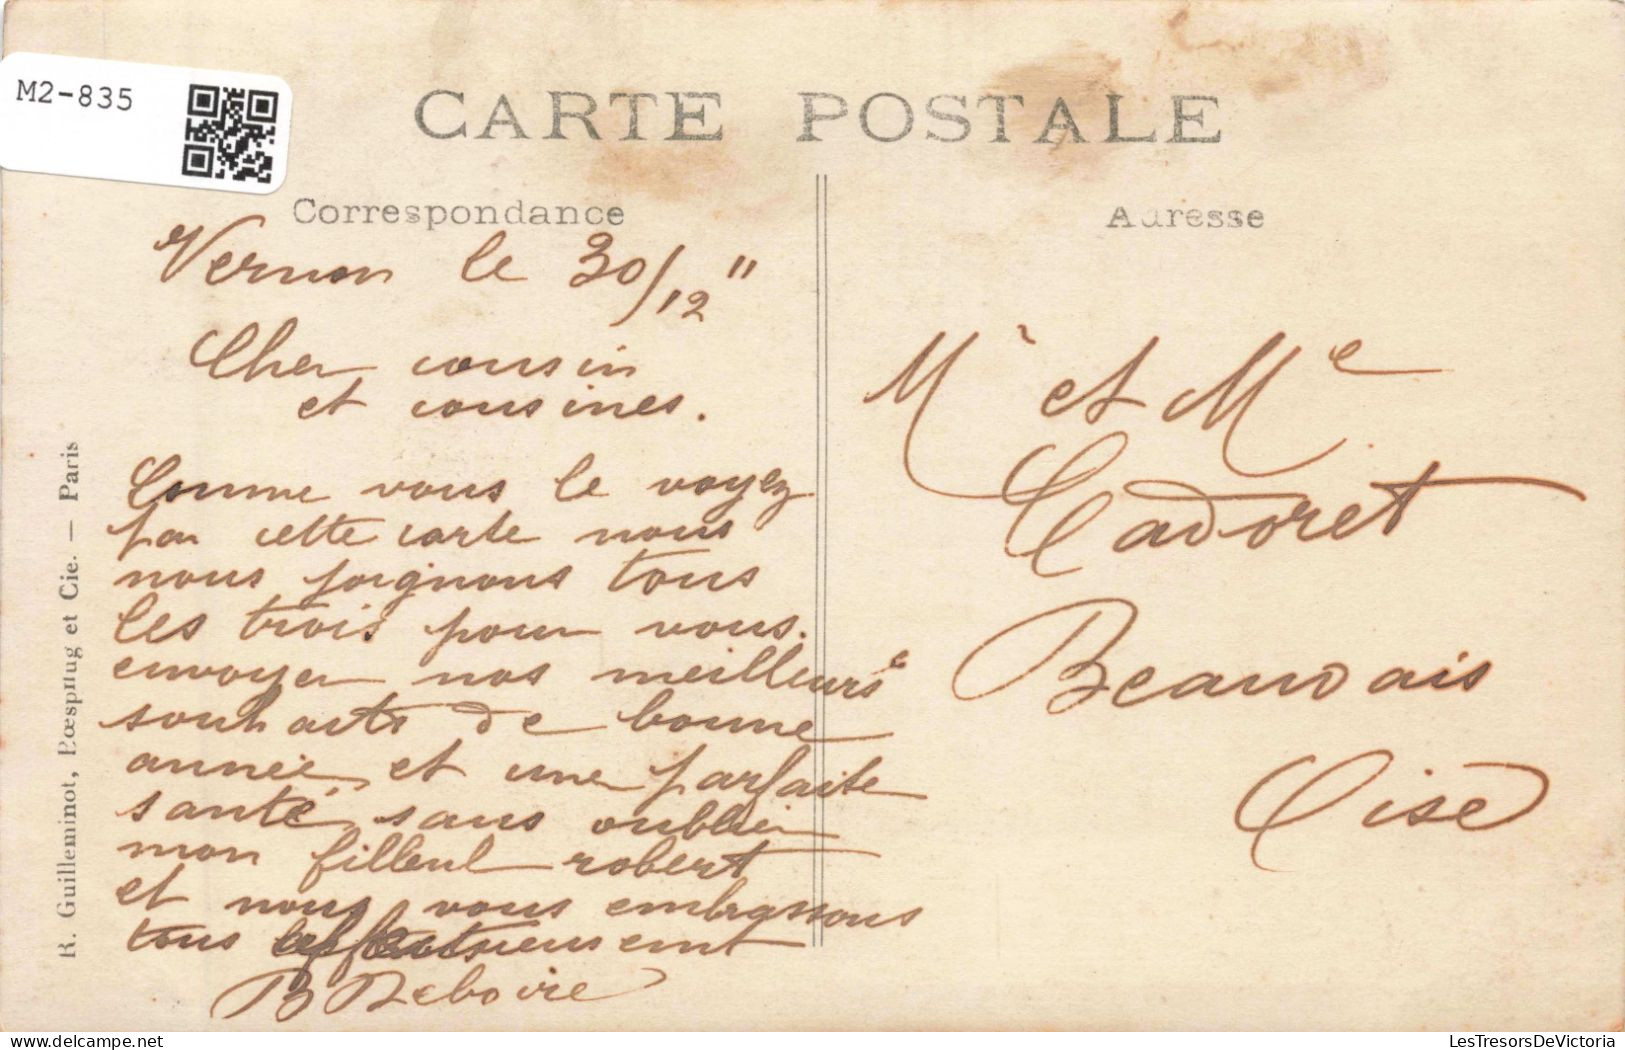 M2-835
CARTE POSTALE
Correspondance
Adresse
Vernon le 30/12 11
Cher cousin
et cousines.
Comme vous le voyez
par cette carte nous
nous joignons tous
les trois pour vous.
envoyer nos meilleurs
souhaits de bonne
année et une parfaite
santé sans oublier
mon filleul robert
et nous vous embrassons
tous affectueusement
B
Mr et Me
Cadoret
Beauvais
Oise
R. Guilleminot, Bœspflug et Cie. — Paris
LesTresorsDeVictoria